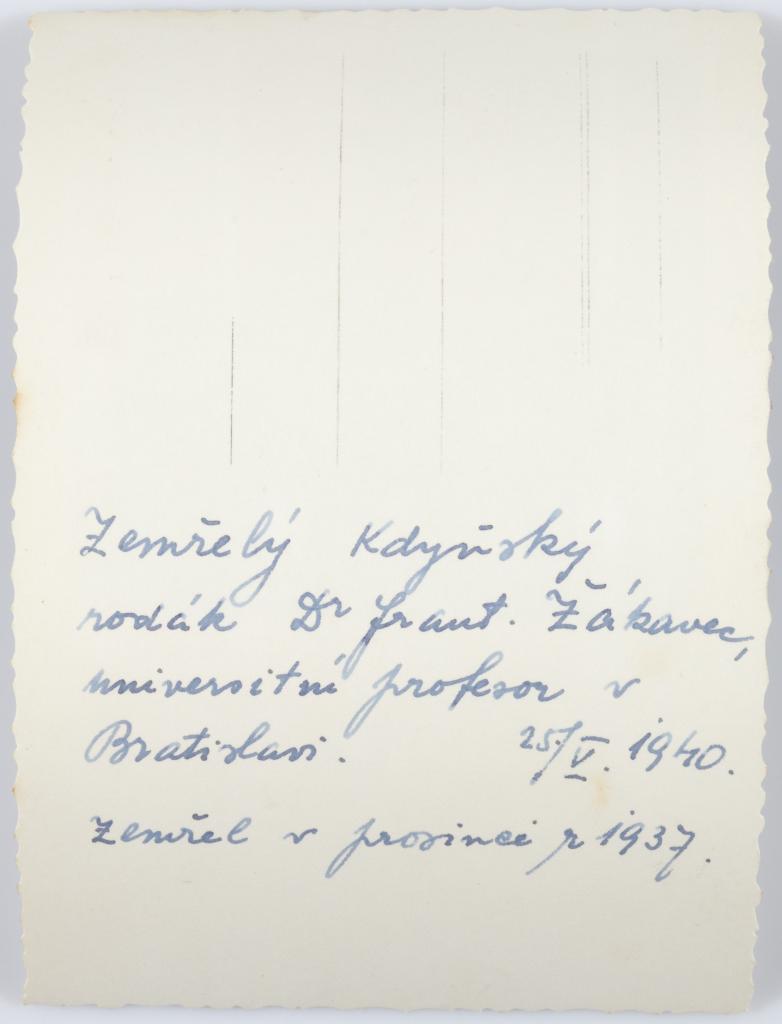 Zemřelý Kdyňský
rodák Dr Frant. Žákavec,
universitní profesor v
Bratislavi. 25/V. 1940.
Zemřel v prosinci r 1937.